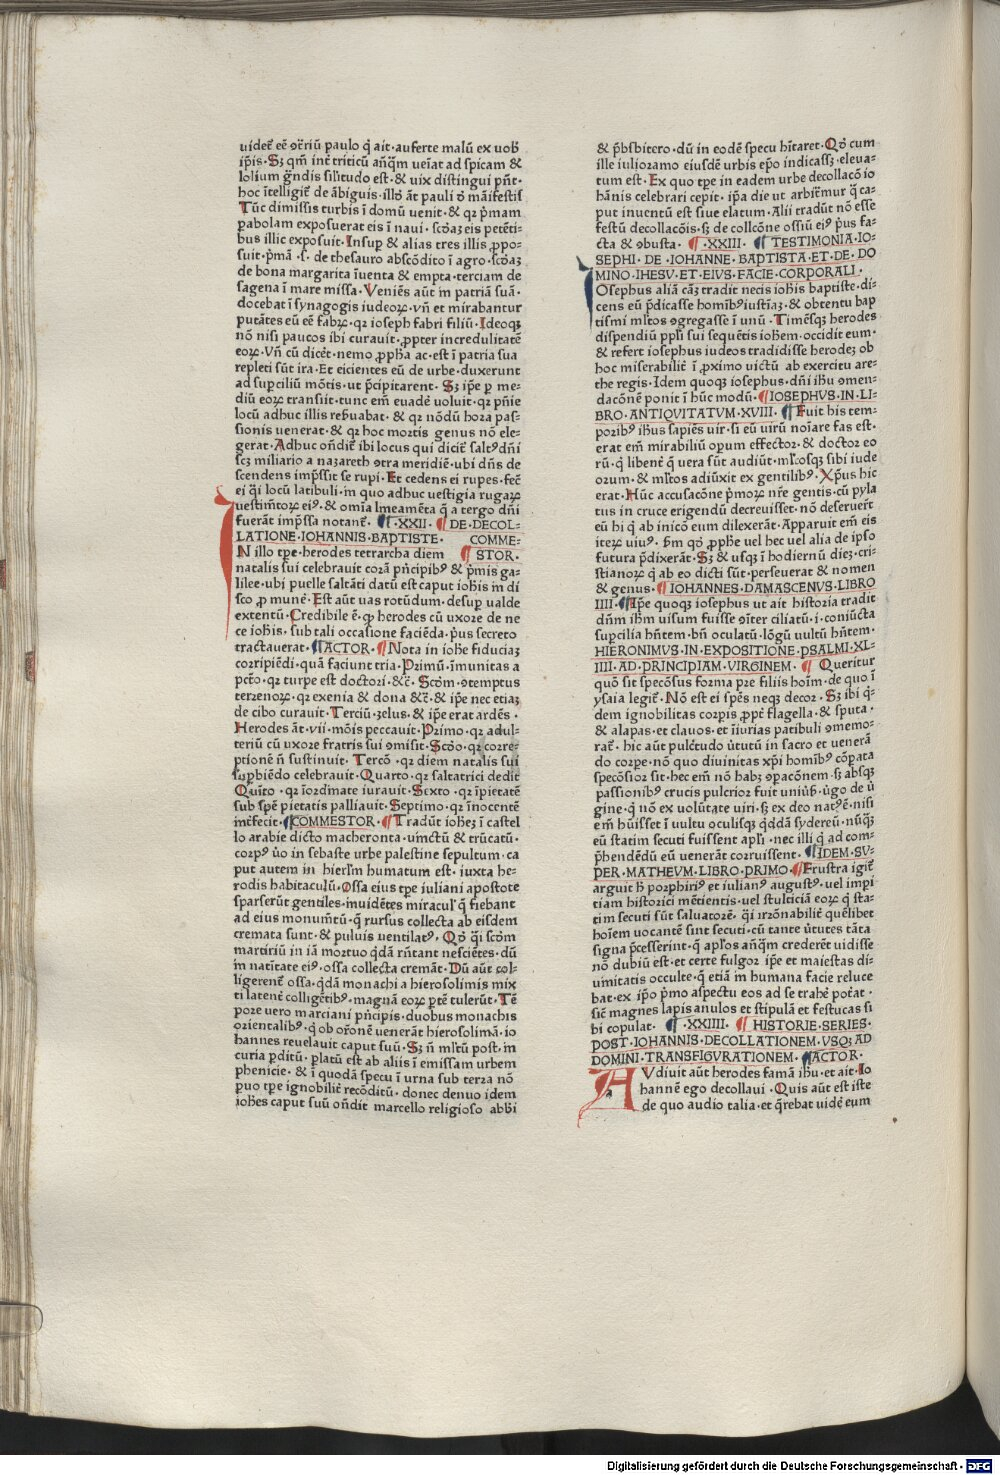 uidet᷒ eē ↄt̄riū paulo q̇ ait·auferte malū ex uob̄
ip̄is·Sꝫ qm̄ int̄ triticū añq̄m ueīat ad spicam &
lolium g̃ndis sil̓itudo est·& uix distingui p̄nt·
hoc ītelligit᷒ de ābiguis·ill̓d āt pauli d̓ māifestis
Tūc dimissis turbis ī domū uenit·& qꝛ p̄mam
ꝑabolam exposuerat eis ī naui·scd̄aꝫ eis petēti-
bus illic exposuit·Insuꝑ & alias tres illis ꝓpo-
suit·p̄mā·s̄·de thesauro abscōdito ī agro·scd̄aꝫ
de bona margarita īuenta & empta·terciam de
sagena ī mare missa·Veniēs aūt in patriā suā·
docebat ī synagogis iudeoꝝ·vn̄ et mirabantur
putātes eū eē fabꝝ·qꝛ ioseph fabri filiū·Ideoqꝫ
nō nisi paucos ibi curauit·ꝓpter incredulitatē
eoꝝ·Vn̄ cū dicet᷒·nemo ꝓph̄a ac·est ī patria sua
repleti sūt ira·Et eicientes eū de urbe·duxerunt
ad suꝑciliū mōtis·ut p̄cipitarent·Sꝫ ip̄e ꝑ me-
diū eoꝝ transiit·tunc em̄ euadē uoluit·qꝛ pn̄ie
locū adhuc illis res̄uabat·& qꝛ nōdū hora pas-
sionis uenerat·& qꝛ hoc mortis genus nō ele-
gerat·Adhuc on̄dit᷒ ibi locus qui dicit᷒ saltꝰ dn̄i
scꝫ miliario a nazareth ↄtra meridiē·ubi dn̄s de
scendens imp̄ssit se rupi·Et cedens ei rupes·fec̄
ei q̄i locū latibuli·in quo adhuc uestigia rugaꝝ
uestim̄toꝝ eiꝰ·& om̄ia lineamēta q̄ a tergo dn̄i
fuerāt imp̄ssa notant᷒· ¶·XXII· ¶DE·DECOL-
LATIONE·IOHANNIS·BAPTISTE· COMME-
IN illo tꝑe·herodes tetrarcha diem ¶STOR·
natalis sui celebrauit corā pn̄cipibꝰ & p̄mis ga-
lilee·ubi puelle saltāti datū est caput ioh̄is in di
sco ꝓ munē·Est aūt uas rotūdum·desuꝑ ualde
extentū·Credibile ē·ꝙ herodes cū uxore de ne
ce ioh̄is·sub tali occasione faciēda·p̄us secreto
tractauerat·¶ACTOR·¶Nota in ioh̄e fiduciaꝫ
corripiēdi·quā faciunt tria·Primū·īmunitas a
pctō·qꝛ turpe est doctori·&c̄·Scd̄m·ↄtemptus
terrenoꝝ·qꝛ exenia & dona &c̄·& ip̄e nec etiaꝫ
de cibo curauit·Terciū·zelus·& ip̄e erat ardēs·
Herodes āt·vii·mōis peccauit·Primo·qꝛ adul-
teriū cū uxore fratris sui ↄmisit·Scd̄o·qꝛ corre-
ptionē nō sustinuit·Tercō·qꝛ diem natalis sui
suꝑbiēdo celebrauit·Quarto·qꝛ saltatrici dedit
Quīto·qꝛ īordinate iurauit·Sexto·qꝛ īpietatē
sub spē pietatis palliauit·Septimo·qꝛ īnocentē
int̄fecit·¶COMMESTOR·¶Tradūt ioh̄eꝫ ī castel
lo arabie dicto macheronta·uinctū & trūcatū·
corpꝰ ūo in sebaste urbe palestine sepultum·ca
put autem in hierlm̄ humatum est·iuxta he-
rodis habitaculū·Ossa eius tꝑe iuliani apostote
sparserūt gentiles·inuidētes miracul̓ q̄ fiebant
ad eius monum̄tū·q̄ rursus collecta ab eisdem
cremata sunt·& puluis uentilatꝰ·Qd̓ q̄i scd̄m
martiriū in iā mortuo q̇dā rn̄tant nesciētes·dū
in natītate eiꝰ·ossa collecta cremāt·Dū aūt col-
ligerent᷒ ossa·q̇dā monachi a hierosolimis mix
ti latent᷒ colligētibꝰ·magnā eoꝝ ꝑtē tulerūt·Tē
pore uero marciani pn̄cipis·duobus monachis
orientalibꝰ·q̇ ob or̄onē uenerāt hierosolimā·io
hannes reuelauit caput suū·Sꝫ n̄ ml̓tū post·in
curia ꝑditū·ꝑlatū est ab aliis ī emissam urbem
phenicie·& ī quodā specu ī urna sub terra nō
ꝑuo tꝑe ignobilit᷒ recōditū·donec denuo idem
ioh̄es caput suū on̄dit marcello religioso abb̄i
& p̄bsbitero·dū in eodē specu h̄itaret·Qd̓ cum
ille iulioramo eiusdē urbis ep̄o indicassꝫ·eleua-
tum est·Ex quo tꝑe in eadem urbe decollacō io
hānis celebrari cepit·ip̄a die ut arbitrēmur q̄ ca-
put inuentū est siue elatum·Alii tradūt nō esse
festū decollacōis·sꝫ de collc̄one ossiū eiꝰ p̄us fa-
cta & ↄbusta· ¶·XXIII· ¶TESTIMONIA·IO-
SEPHI·DE·IOHANNE·BAPTISTA·ET·DE·DO
MINO·IHESV·ET·EIVS·FACIE·CORPORALI·
IOsephus aliā cāꝫ tradit necis ioh̄is baptiste·di-
cens eū p̄dicasse homībꝰ iustīaꝫ·& obtentu bap
tismi ml̓tos ↄgregasse ī unū·Timēsqꝫ herodes
dispendiū ppl̓i sui sequētis ioh̄em·occidit eum·
& refert iosephus iudeos tradidisse herodeꝫ ob
hoc miserabilit᷒ ī ꝓximo uictū ab exercitu are-
the regis·Idem quoqꝫ iosephus·dn̄i ih̄u ↄmen-
dacōnē ponit ī hūc modū·¶IOSEPHVS·IN·LI-
BRO·ANTIQVITATVM·XVIII·¶Fuit his tem-
poribꝰ ih̄us sapiēs uir·si eū uirū noīare fas est·
erat em̄ mirabiliū oꝑum effector·& doctor eo
rū·q̇ libent᷒ q̄ uera sūt audiūt·ml̓tosqꝫ sibi iude
orum·& ml̓tos adiūxit ex gentilibꝰ·Xp̄us hic
erat·Hūc accusacōne p̄moꝝ nr̄e gentis·cū pyla
tus in cruce erigendū decreuisset·nō deseruer̄t
eū hi q̇ ab inicō eum dilexerāt·Apparuit em̄ eis
iteꝝ uiuꝰ·s̄m qd̓ ꝓph̄e uel hec uel alia de ipso
futura p̄dixerāt·Sꝫ & usqꝫ ī hodiernū dieꝫ·cri-
stianoꝝ q̇ ab eo dicti sūt·perseuerat & nomen
& genus·¶IOHANNES·DAMASCENVS·LIBRO
IIII·¶Ip̄e quoqꝫ iosephus ut ait historia tradit
dn̄m ih̄m uisum fuisse ↄit̄er ciliatū·i·coniūcta
suꝑcilia hn̄tem·bn̄ oculatū·lōgū uultū hn̄tem·
HIERONIMVS·IN·EXPOSITIONE·PSALMI·XL-
IIII·AD·PRINCIPIAM·VIRGINEM· ¶ Queritur
quō sit specōsus forma pre filiis hoīm·de quo ī
ysaia legit᷒·Nō est ei spēs neqꝫ decor·Sꝫ ibi q̇-
dem ignobilitas corpis ꝓpt᷒ flagella·& sputa·
& alapas·et clauos·et īiurias patibuli ↄmemo-
rat᷒·hic aūt pulc̄tudo ūtutū in sacro et uenerā
do corpe·nō quo diuinitas xp̄i homībꝰ cōꝑata
specōsior sit·hec em̄ nō habꝫ ↄꝑacōnem·sꝫ absqꝫ
passionibꝰ crucis pulcrior fuit uniūs̄·ūgo de ū
gine·q̇ nō ex uolūtate uiri·sꝫ ex deo natꝰ ē·nisi
em̄ h̄uisset ī uultu oculisqꝫ q̇ddā sydereū·nūqꝫ
eū statim secuti fuissent apl̓i·nec illi q̇ ad com-
p̄hendēdū eū uenerāt corruissent·¶IDEM·SV-
PER·MATHEVM·LIBRO·PRIMO·¶Frustra igit᷒
arguit h̄ porphiriꝰ et iulianꝰ augustꝰ·uel impi
tiam historici mētientis·uel stulticiā eoꝝ q̇ sta-
tim secuti sūt saluatorē·q̄i ir̄rōnabilit᷒ quēlibet
hoīem uocantē sint secuti·cū tante ūtutes tāta
signa p̄cesserint·q̄ apl̓os añq̄m crederēt uidisse
nō dubiū est·et certe fulgor ip̄e et maiestas di-
uinitatis occulte·q̄ etiā in humana facie reluce
bat·ex ip̄o p̄mo aspectu eos ad se trahē pot᷒at·
sic̄ magnes lapis anulos et stipulā et festucas si
bi copulat· ¶·XXIIII· ¶HISTORIE·SERIES·
POST·IOHANNIS·DECOLLATIONEM·VSQꝫ·AD
DOMINI·TRANSFIGVRATIONEM·¶ACTOR·
AVdiuit aūt herodes famā ih̄u·et ait·Io
hannē ego decollaui·Quis aūt est iste
de quo audio talia·et q̄rebat uidē eum
Digitalisierung gefördert durch die Deutsche Forschungsgemeinschaft - DFG